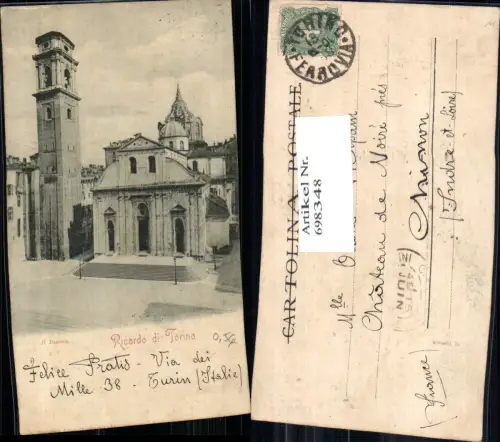 Il Duomo
Ricordo di Torino
0,50
Felice Pratis - Via dei
Mille 38 - Turin (Italie)
TORINO
FERROVIA
CARTOLINA POSTALE
Artikel Nr.
698348
Mlle
Château de Noiré près
Chinon
(Indre-et-Loire)
JUIN
(France)